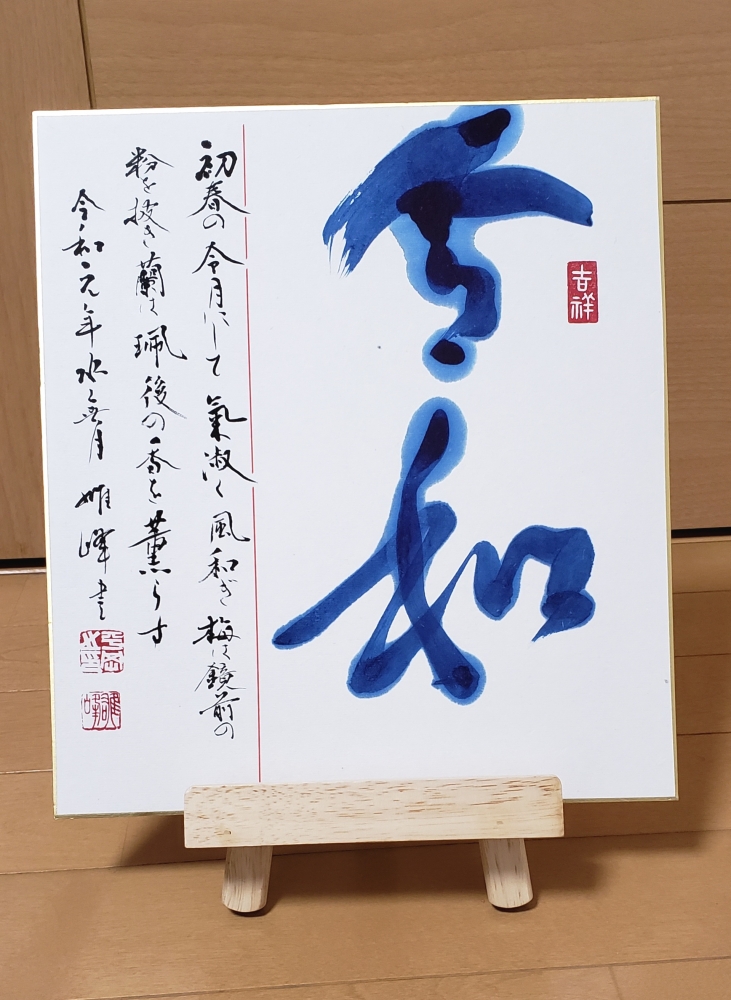 令和
吉祥
初春の令月にして氣淑く風和ぎ梅は鏡前の
粉を披き蘭は珮後の香を薫らす
令和元年水無月 雄峰書